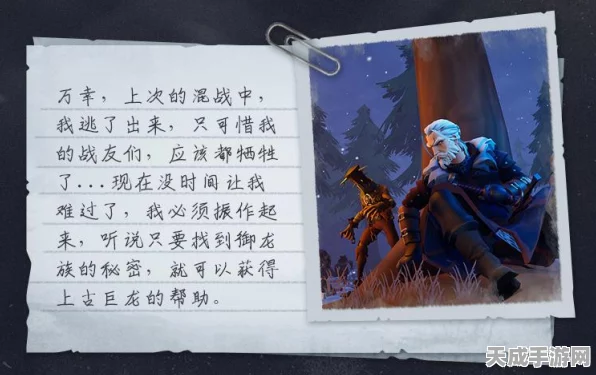 万幸，上次的混战中，
我逃了出来，只可惜我
的战友们，应该都牺牲
了...现在没时间让我
难过了，我必须振作起
来，听说只要找到御龙
族的秘密，就可以获得
上古巨龙的帮助。
天成手游网